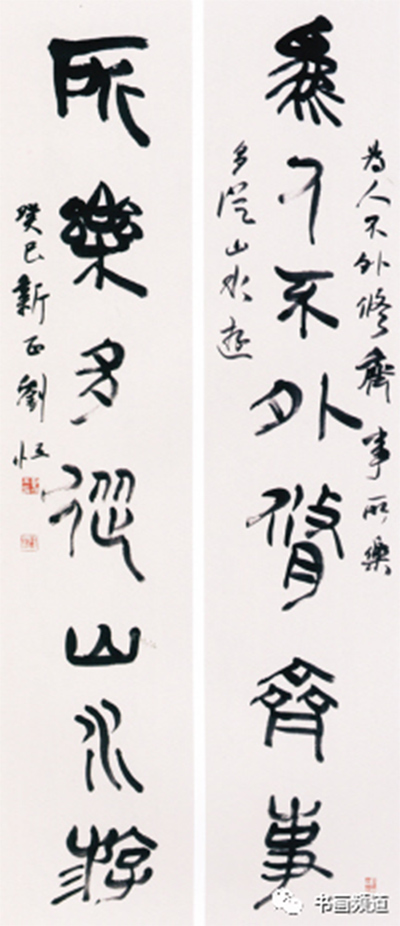 為人不外脩齊事
所樂多從山水游
為人不外修齊事所樂
多從山水遊
癸巳新正劉恒
书画频道